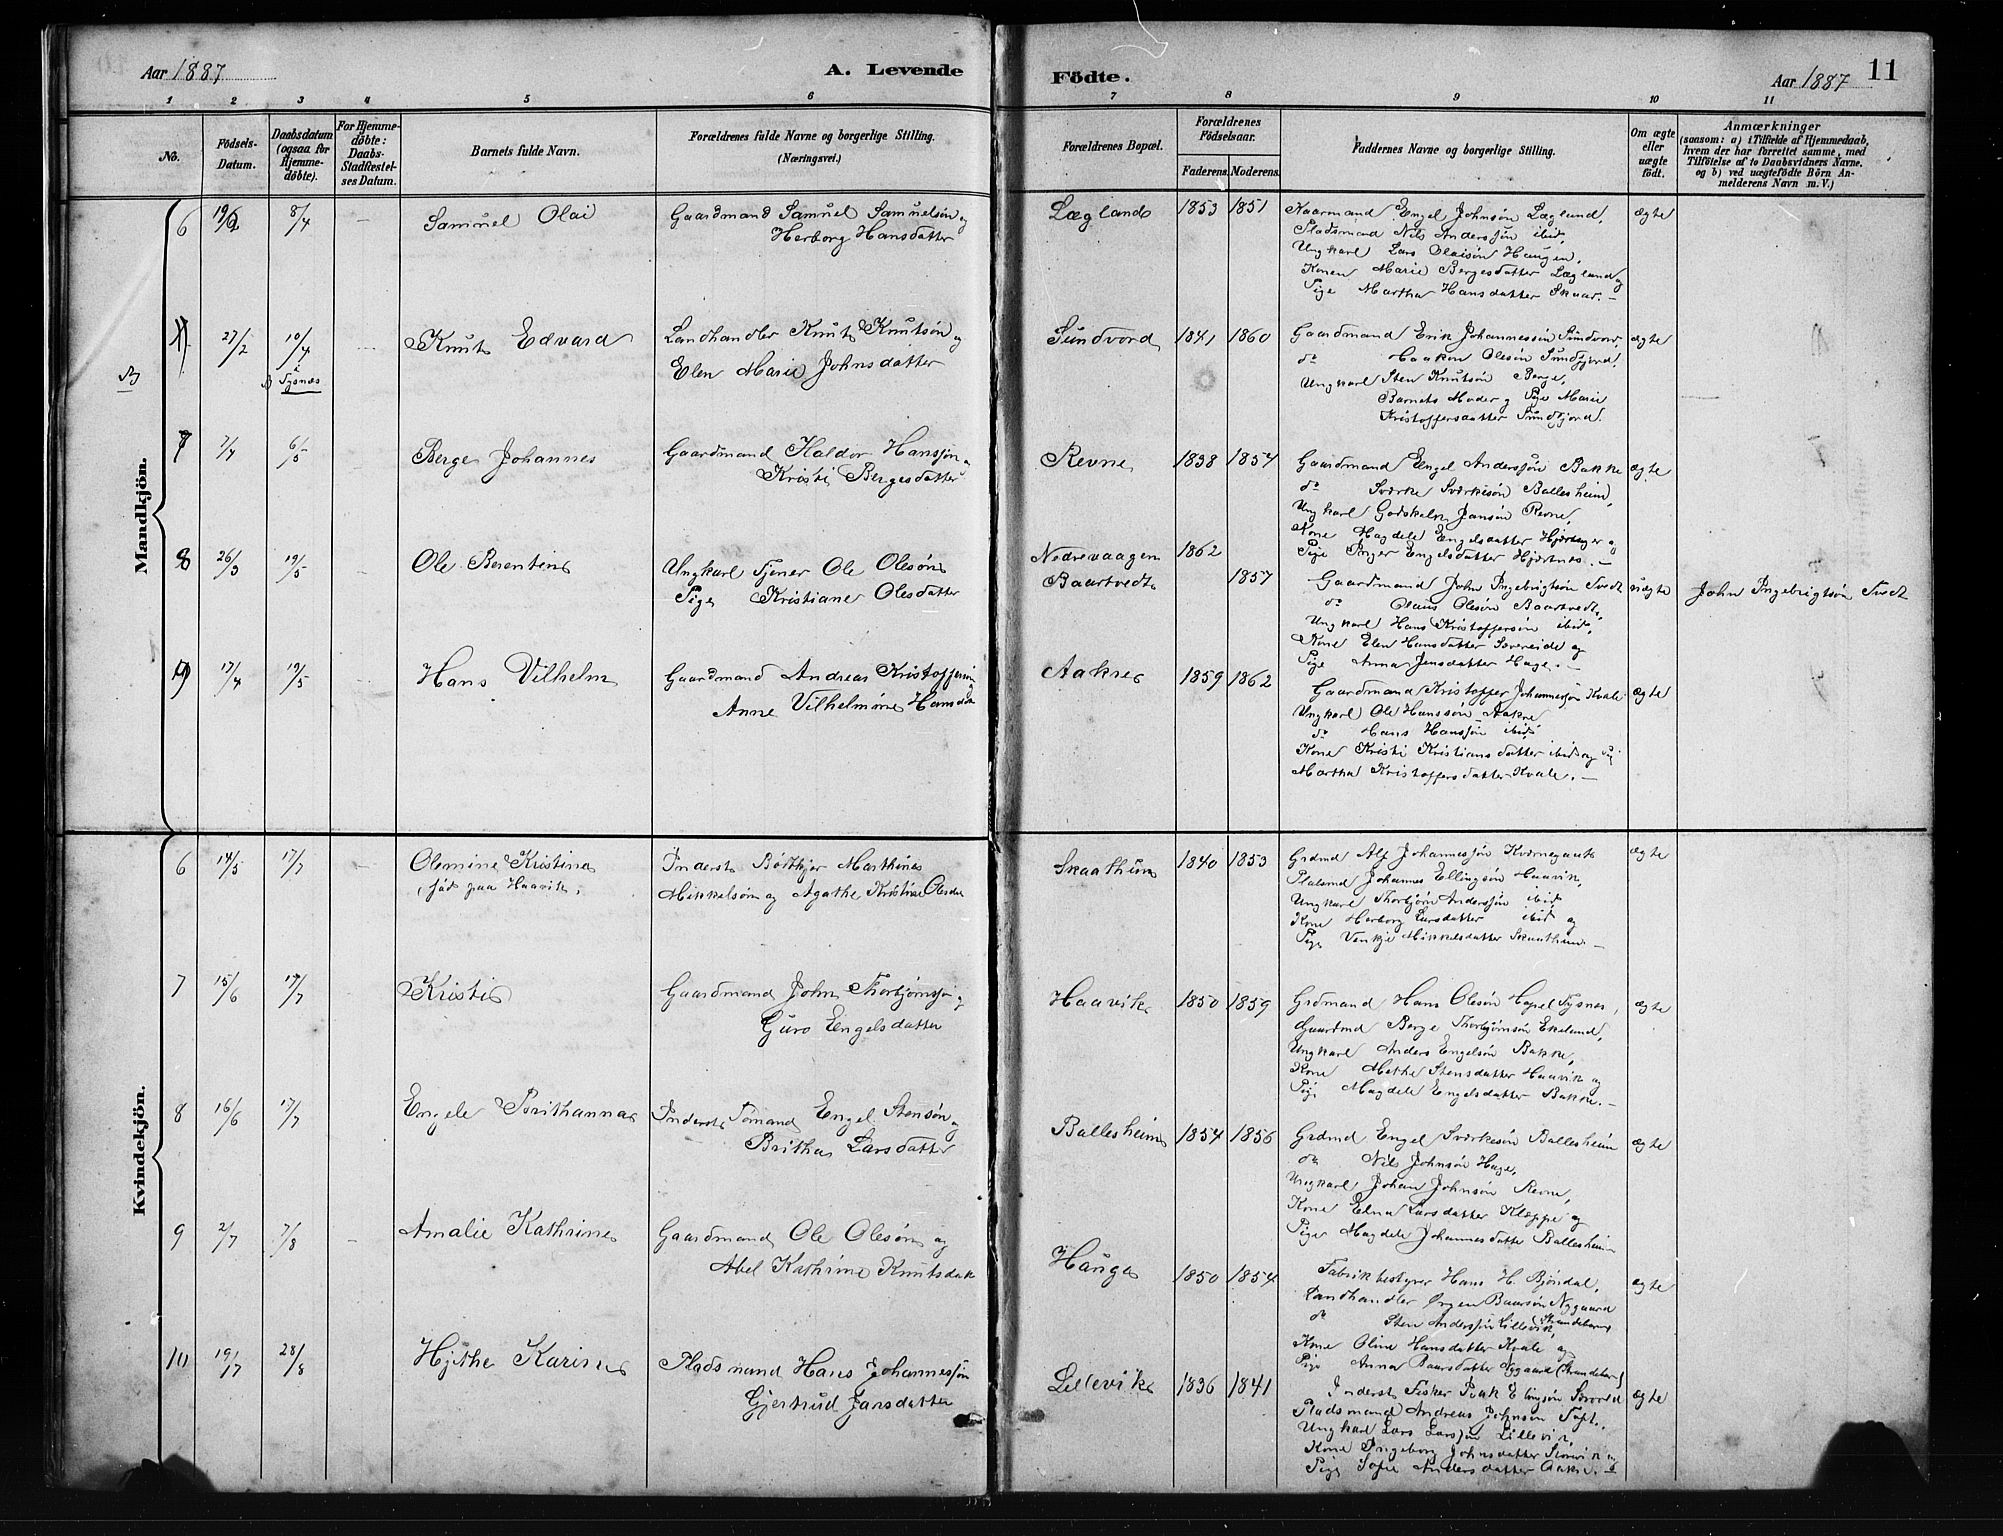 Aar 1887
A. Levende
Födte.
Aar 1887
11
1 2 3 4 5 6 7 8 9 10 11
No.
Födsels-Datum.
Daabsdatum (ogsaa for Hjemme-döbte).
For Hjemme-döbte: Daabs-Stadfæstel-ses Datum.
Barnets fulde Navn.
Forældrenes fulde Navne og borgerlige Stilling. (Næringsvei.)
Forældrenes Bopæl.
Forældrenes Födselsaar.
Faderens. Moderens.
Faddernes Navne og borgerlige Stilling.
Om ægte eller uægte födt.
Anmærkninger
(saasom: a) i Tilfælde af Hjemmedaab, hvem der har forrettet samme, med Tilföielse af to Daabsvidners Navne, og b) ved uægtefödte Börn An-melderens Navn m. V.)
Mandkjön.
6 19/2 8/4 — Samuel Olai
Gaardmand Samuel Samuelsön og
Herborg Hansdatter
Lægland 1853 1851
Naarmand Engel Johnsön Lægland,
Pladsmand Nils Anderssön ibid,
Ungkarl Lars Olaisön Haugen,
Konen Marie Bergesdatter Lægland og
Pige Martha Hansdatter Skaar. —
ægte
27/2 10/4 i Tysnæs
Knut Edvard
Landhandler Knut Knutsön og
Elen Marie Johnsdatter
Sundvord 1841 1860
Gaardmand Erik Johannessön Sundvor
do Haakon Olesön Sundfjord,
Ungkarl Sten Knutsön Berge,
Barnets Moder og Pige Marie
Kristoffersdatter Sundfjord.
ægte
7 7/4 6/5 Berge Johannes
Gaardmand Haldor Hanssön og
Kristi Bergesdatter
Revne 1838 1854
Gaardmand Engel Anderssön Bakke
do Sværke Sværkesön Ballesheim,
Ungkarl Godskalk Jansön Revne,
Kone Magdele Engelsdatter Hjærtager og
Pige Inger Engelsdatter Hjærtnes. —
ægte
8 26/3 19/5 — Ole Berentin
Ungkarl Tjener Ole Olesön
Pige Kristiane Olesdatter
Nedrevaagen 1862
Baartvedt 1857
Gaardmand John Ingebrigtsön Tvedt
do Olaus Olesön Baartvedt,
Ungkarl Hans Kristoffersön ibid,
Kone Elen Hansdatter Sævereide og
Pige Anna Jensdatter Hage. —
uægte
John Ingebrigtsön Tvedt
9 17/4 19/5 Hans Vilhelm
Gaardmand Andreas Kristoffersön
Anne Vilhelmine Hansdtr
Aakre 1859 1862
Gaardmand Kristoffer Johannessön Kvale
Ungkarl Ole Hanssön Aakre
do Hans Hanssön ibid
Kone Kristi Kristiansdatter ibid og
Martha Kristoffersdatter Kvale. —
ægte
Kvindekjön.
6 14/5 17/7 Olemine Kristine
(föd paa Haavik.)
Inderst Bödtkjer Marthines
Mikkelsön og Agathe Kristine Olesdtr
Skaatheim 1840 1853
Grdmd Alf Johannessön
Pladsmd Johannes Ellingsön Haavik,
Ungkarl Thorbjörn Anderssön ibid
Kone Herborg Larsdatter ibid og
Pige Venkje Mikkelsdatter Skaatheim —
ægte
7 15/6 17/7 — Kristi
Gaardmand John Thorbjörnssön og
Guro Engelsdatter
Haavik 1850 1859
Grdmand Hans Olesön Hopel Tysnes,
Gaardmd Berge Thorbjörnsön Ekeland,
Ungkarl Anders Engelsön Bakke,
Kone Methe Stensdatter Haavik og
Pige Magdele Engelsdatter Bakke. —
ægte
8 16/6 17/7 — Engele Brithanna
Inderst Sömand Engel Stensön og
Britha Larsdatter
Ballesheim 1854 1856
Grdmd Engel Sværkesön Ballesheim
do Nils Johnsön Hage,
Ungkarl Johan Johnsön Revne,
Kone Elna Larsdatter Kleppe og
Pige Magdele Johannesdatter Ballesheim
ægte
9 2/7 7/8 — Amalie Kathrine
Gaardmand Ole Olesön og
Abel Kathrine Knutsdatr
Hauge 1850 1854
Fabrikbestyrer Hans H. Bjöndal,
Landhandler Örgen Baarsön Nygaard Strandebarm
do Sten Anderssön Lillevik,
Kone Oline Hansdatter Kvale og
Pige Anna Baarsdatter Nygaard (Strandebarm)
ægte
10 19/7 28/8 Hjethe Karine
Pladsmand Hans Johannessön
Gjertrud Jansdatter
Lillevik 1836 1841
Inderst Fisker Elingsön
Pladsmand Andreas Johnsön Toft.
Ungkarl Lars Larssön Lillevik,
Kone Ingeborg Johnsdatter Storvik og
Pige Sofie Andersdatter Aakre. —
ægte